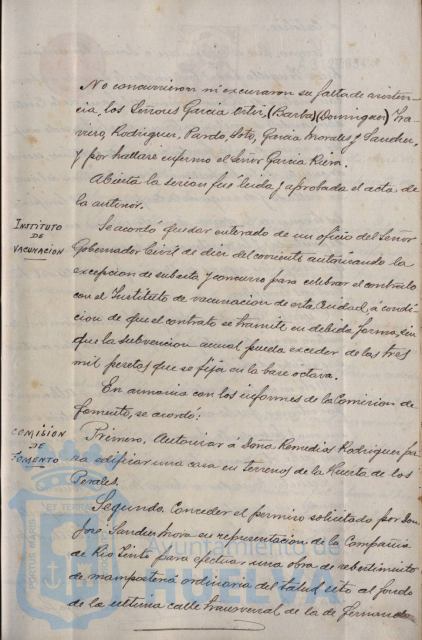 No concurrieron ni excusaron su falta de asisten-
cia, los Señores Garcia Ortiz, (Barba) (Dominguez)
Rodriguez, Pardo, Soto, Garcia Morales y Sanchez,
y por hallarse enfermo el Señor Garcia Riera.
Abierta la sesion fué leida y aprobada el acta de
la anterior.
INSTITUTO
DE
VACUNACION
Se acordó quedar enterado de un oficio del Señor
Gobernador Civil de diez del corriente autorizando la
excepcion de subasta y concurso para celebrar el contrato
con el Instituto de vacunacion de esta Ciudad, á condi-
cion de que el contrato se tramite en debida forma, sin
que la subvencion anual pueda exceder de las tres
mil pesetas que se fija en la base octava.
En armonia con los informes de la Comision de
Fomento, se acordó:
COMISIÓN
DE
FOMENTO
Primero. Autorizar á Doña Remedios Rodriguez pa-
ra edificar una casa en terrenos de la Huerta de los
Perales.
Segundo. Conceder el permiso solicitado por Don
José Sanchez Mora en representacion de la Compañia
de Rio Tinto para efectuar una obra de revestimiento
de mamposteria ordinaria del talud sito al fondo
de la septima calle transversal de la de Fernando
PORTUS MARIS ET TERRAE
Ayuntamiento de
HUELVA